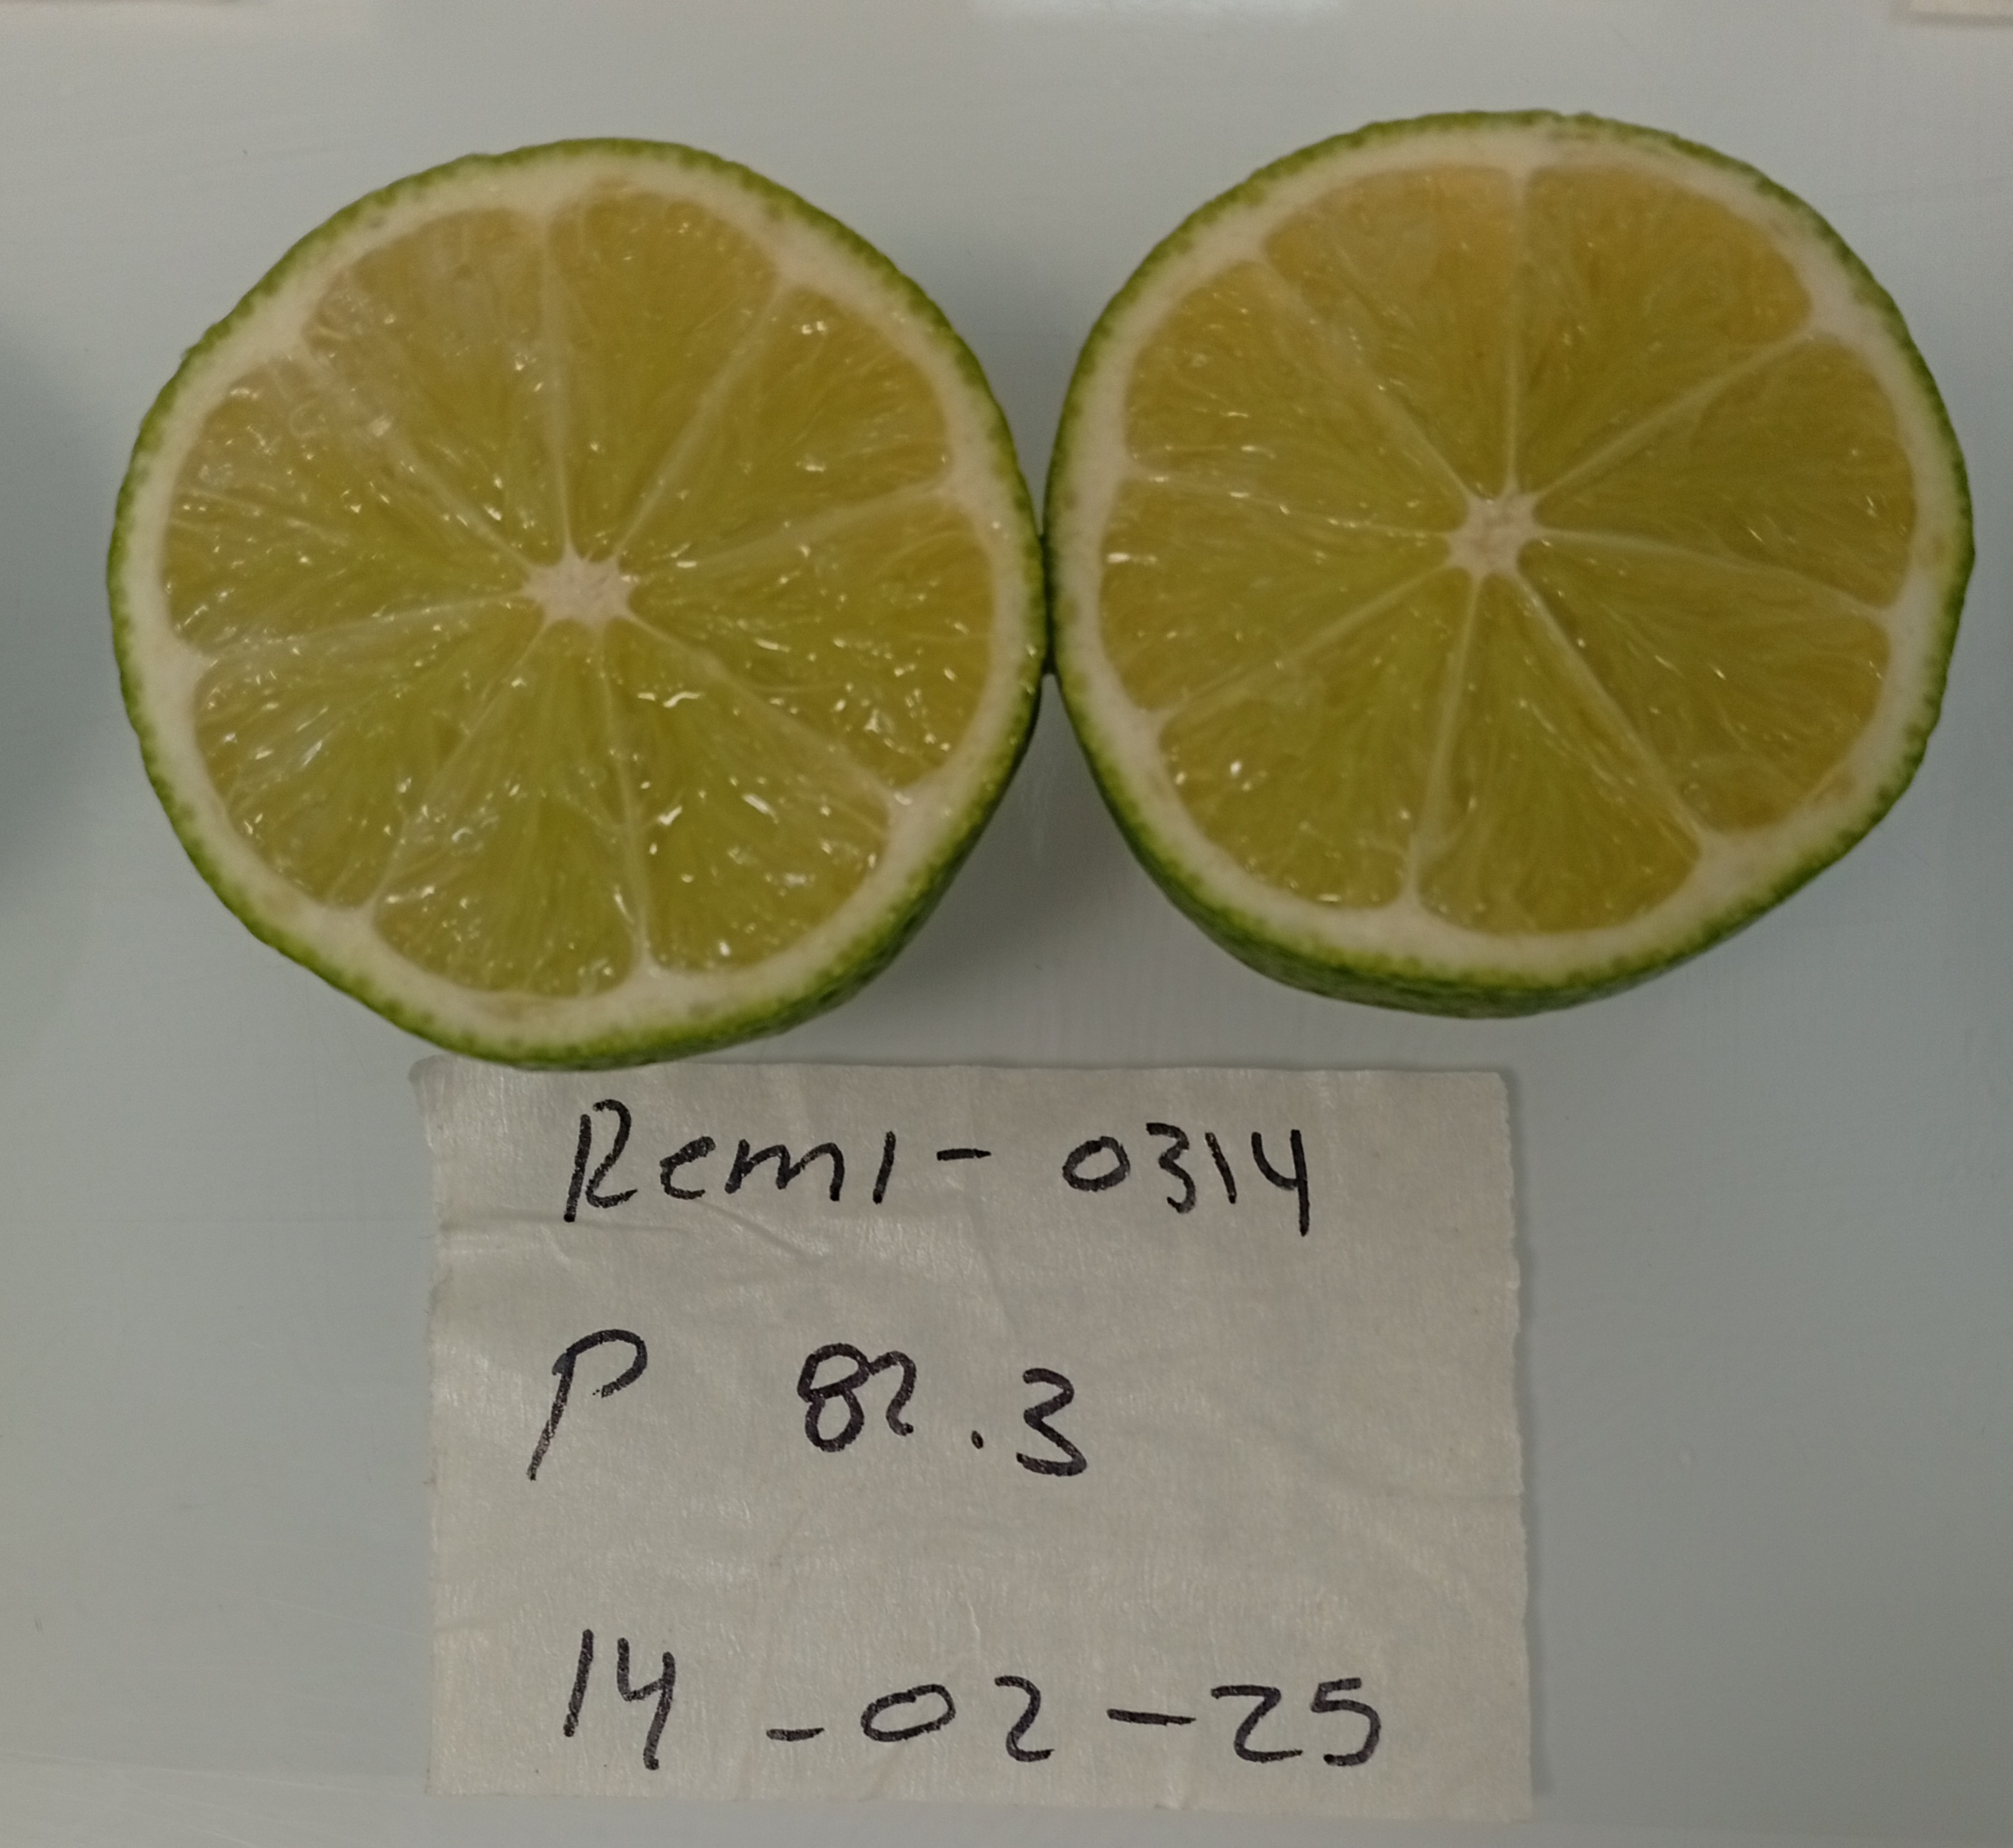 Remi - 0314
P 82.3
14 - 02 - 25